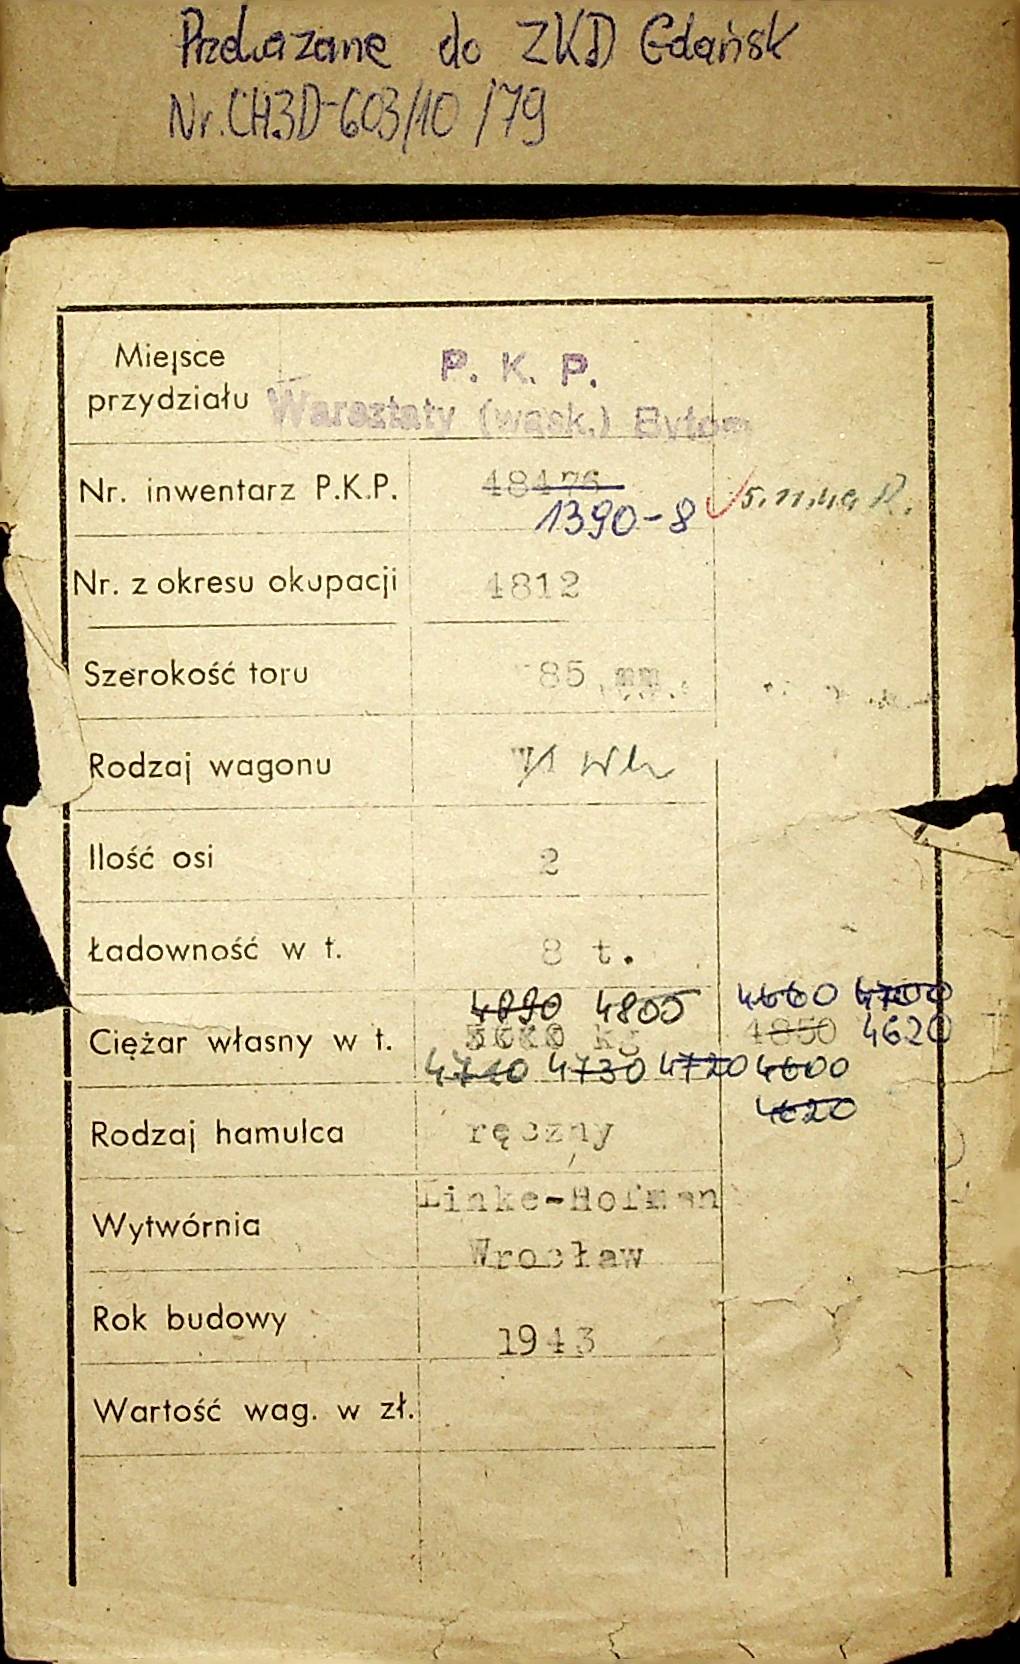 Przekazane do ZKD Gdańsk
Nr. CH3D-603/10 /79
Miejsce przydziału P. K. P.
Warsztaty (wąsk.) Bytom
Nr. inwentarz P.K.P. 48476
1390-8
Nr. z okresu okupacji 4812
Szerokość toru 85 mm
Rodzaj wagonu Wh
Ilość osi 2
Ładowność w t. 8 t.
4890 4805 4660 4700
Ciężar własny w t. kg 4850 4620
4710 4730 4720 4600
4620
Rodzaj hamulca ręczny
Wytwórnia Linke-Hofman
Wrocław
Rok budowy 1943
Wartość wag. w zł.